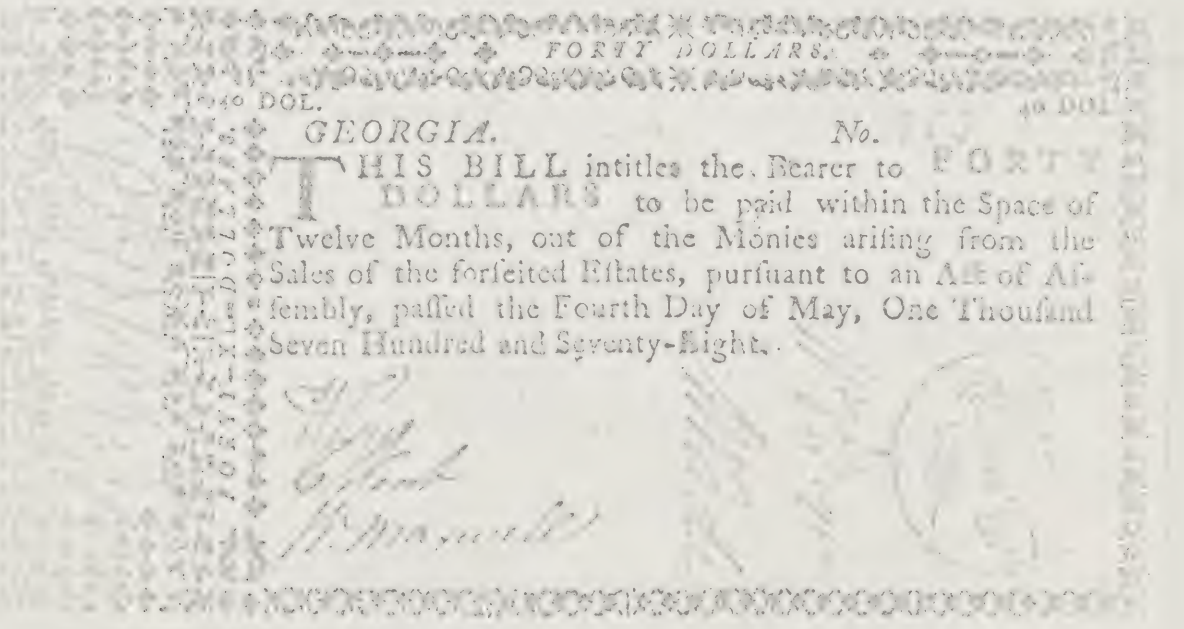 FORTY DOLLARS.
40 DOL.
40 DOL
GEORGIA. No.
THIS BILL intitles the Bearer to FORTY
DOLLARS to be paid within the Space of
Twelve Months, out of the Monies ariſing from the
Sales of the forfeited Eſtates, purſuant to an Act of Aſ-
ſembly, paſſed the Fourth Day of May, One Thouſand
Seven Hundred and Seventy-Eight.
Wm. Maxwell
FORTY DOLLARS.